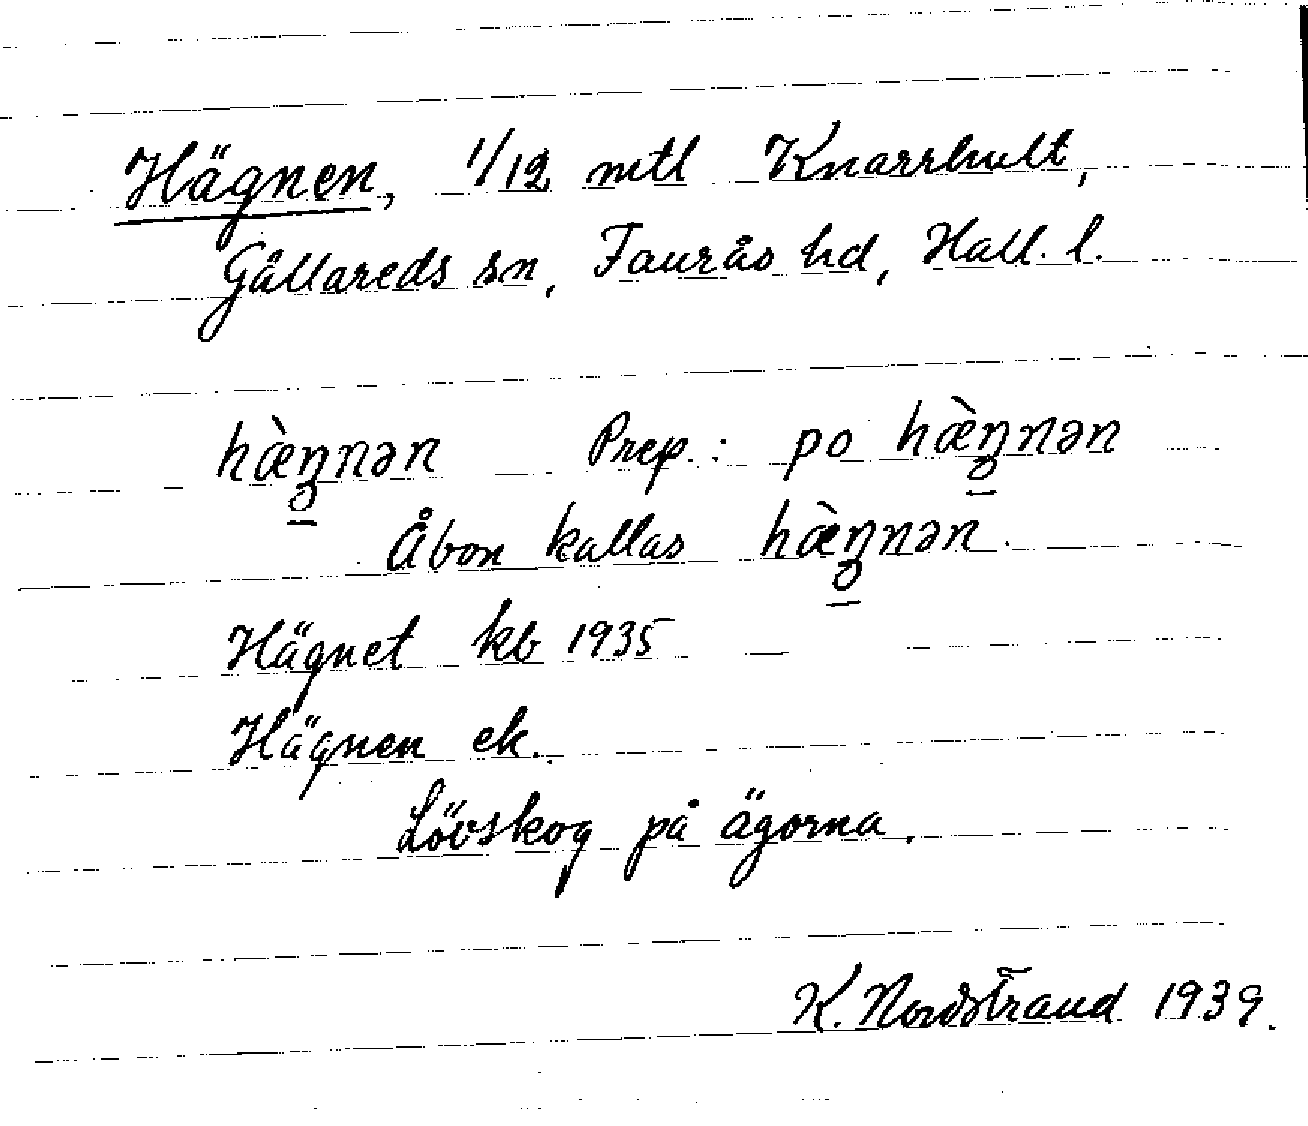 Hägnen, 1/12 mtl Knarrhult,
Gällareds sn, Faurås hd, Hall. l.
hæ̀ŋ̱nən Prep.: po hæ̀ŋ̱nən
Åbon kallas hæ̀ŋ̱nən.
Hägnet kb 1935
Hägnen ek.
Lövskog på ägorna.
K. Nordstrand 1939.